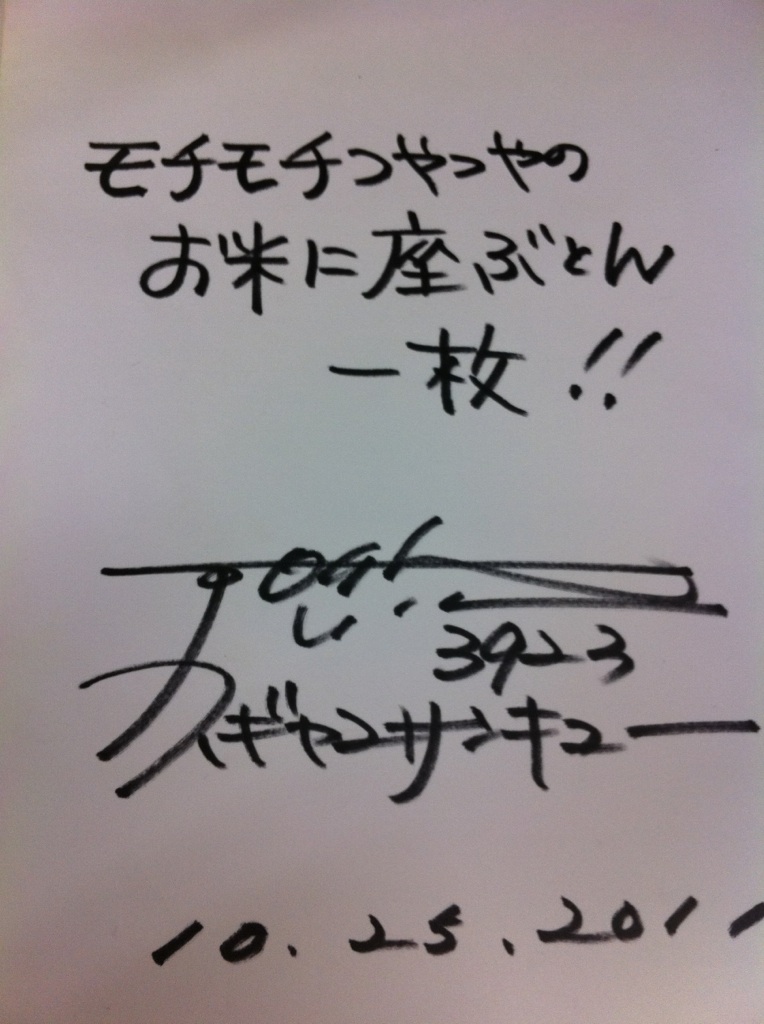 モチモチつやつやの
お米に座ぶとん
一枚!!
3923
ギャンサンキュー
10.25.2011